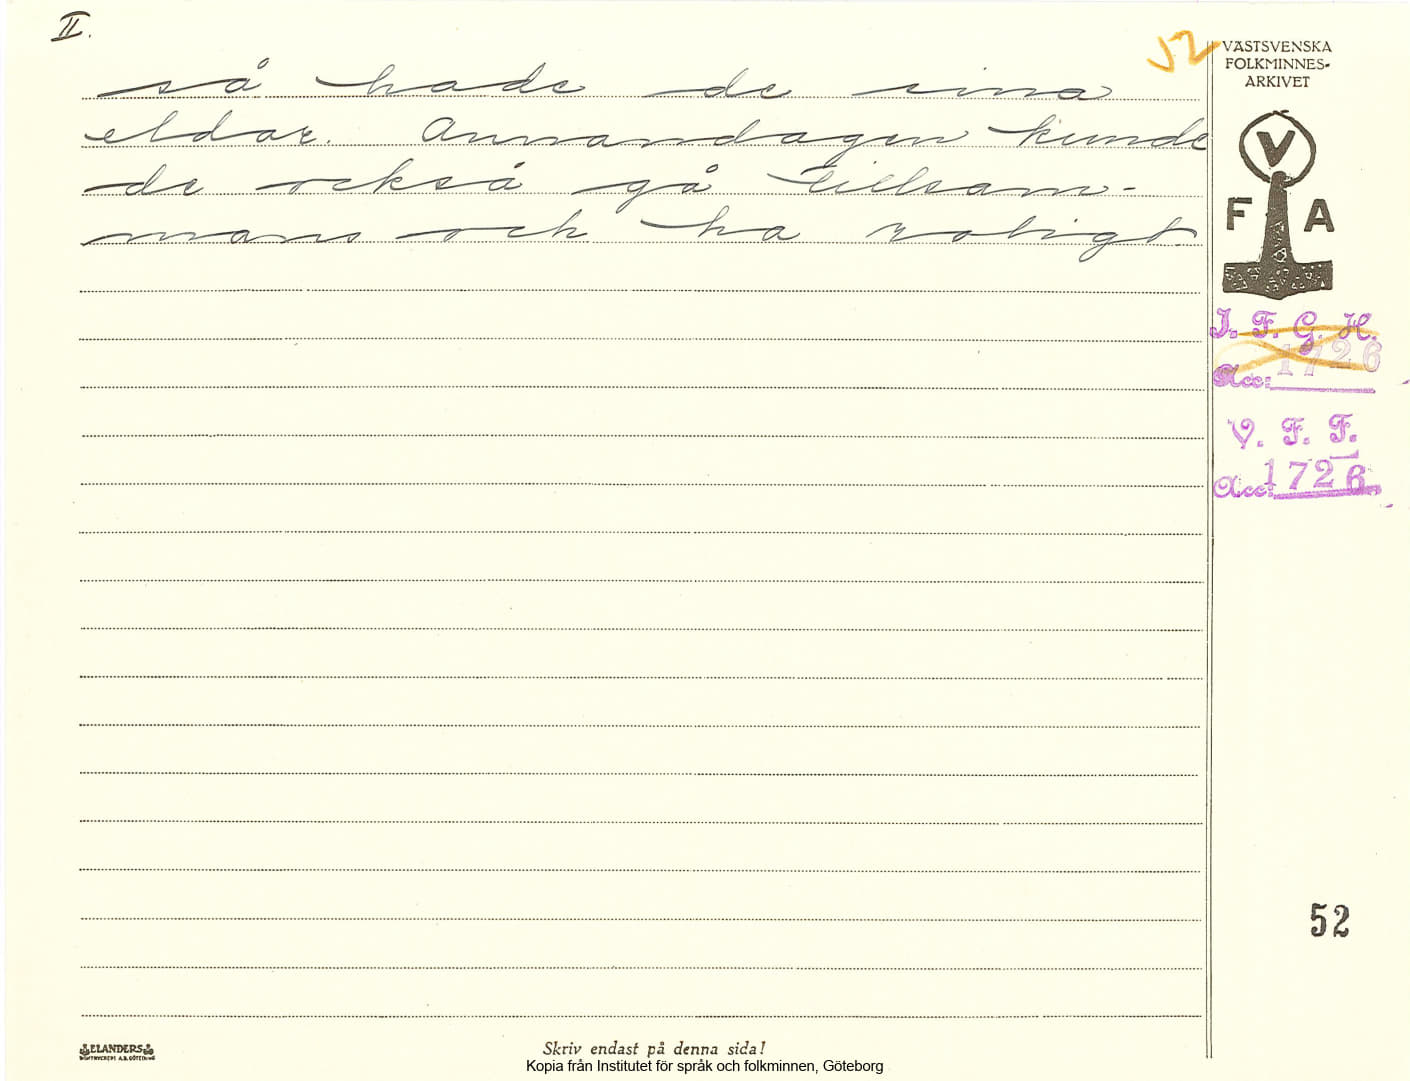 II.
52
så hade de sina
eldar. Annandagen kunde
de också gå tillsam-
mans och ha roligt
VÄSTSVENSKA
FOLKMINNES-
ARKIVET
V
F A
I. F. G. H.
Acc: 1726
V. F. F.
Acc: 1726
52
ELANDERS
Skriv endast på denna sida!
Kopia från Institutet för språk och folkminnen, Göteborg